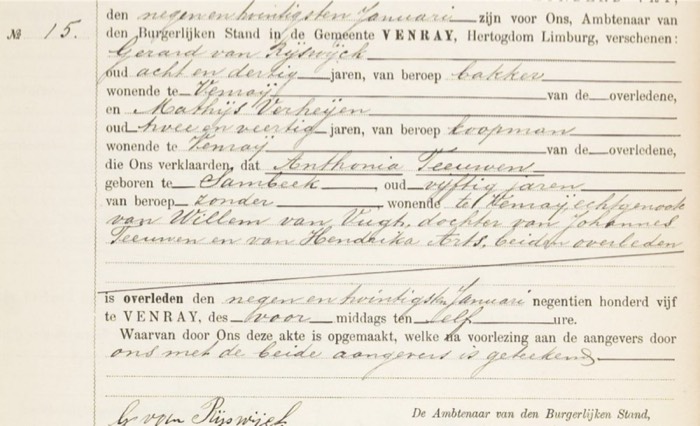 den negen en twintigsten Januari zijn voor Ons, Ambtenaar van
№ 15.
den Burgerlijken Stand in de Gemeente VENRAY, Hertogdom Limburg, verschenen:
Gerard van Rijswijck
oud acht en dertig jaren, van beroep bakker
wonende te Venraij van de overledene,
en Mathijs Verheijen
oud twee en viertig jaren, van beroep koopman
wonende te Venraij van de overledene,
die Ons verklaarden, dat Anthonia Teeuwen
geboren te Sambeek, oud vijftig jaren
van beroep zonder, wonende te Venraij echtgenoote
van Willem van Vugh, dochter van Johannes
Teeuwen en van Hendrika Arts, beiden overleden
is overleden den negen en twintigsten Januari negentien honderd vijf
te VENRAY, des voor middags ten elf ure.
Waarvan door Ons deze akte is opgemaakt, welke na voorlezing aan de aangevers door
ons met de beide aangevers is geteekend
G van Rijswijck
De Ambtenaar van den Burgerlijken Stand,